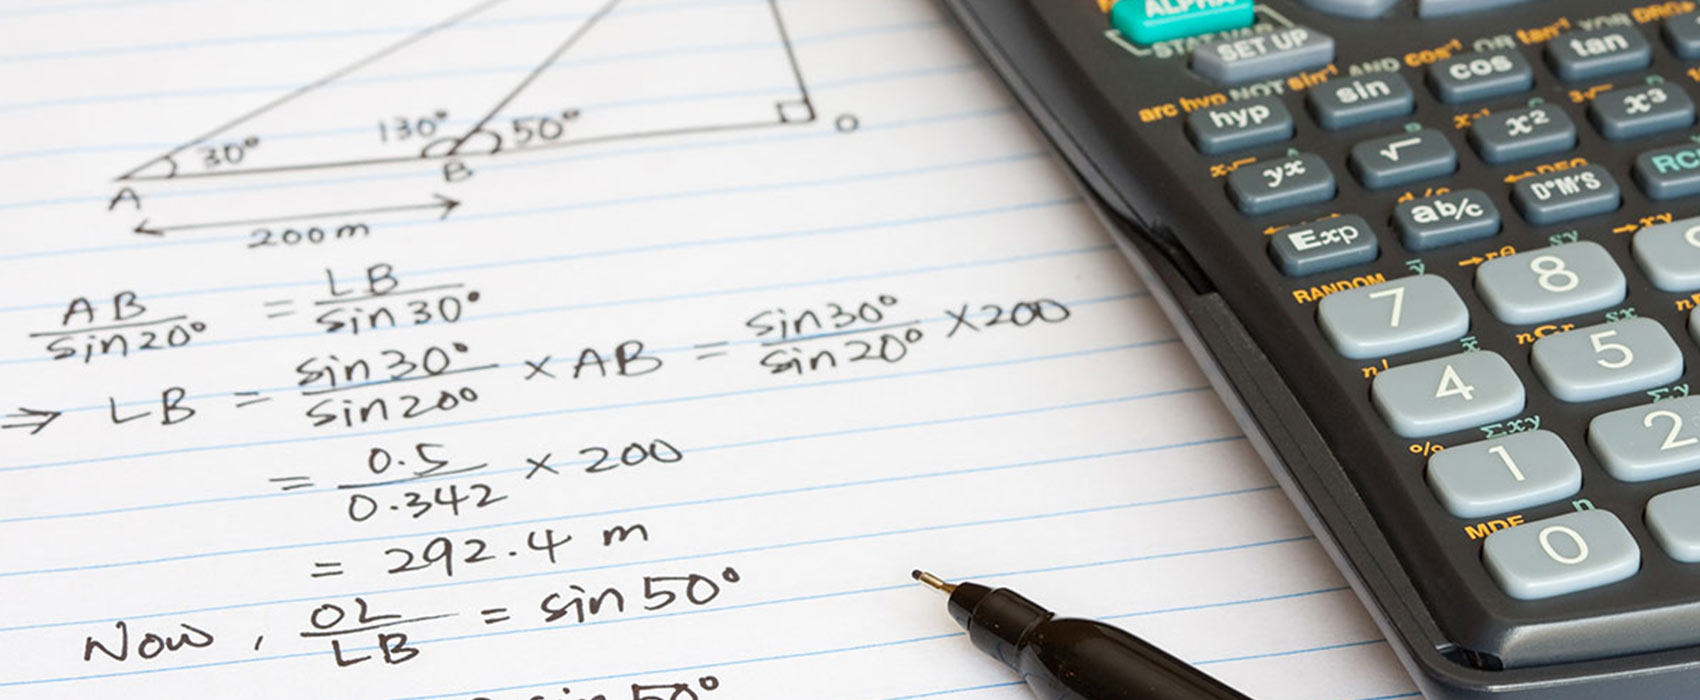 30°
130°
50°
A
B
O
200m
AB/sin20° = LB/sin30°
⇒ LB = sin30°/sin20° × AB = sin30°/sin20° × 200
= 0.5/0.342 × 200
= 292.4 m
Now, OL/LB = sin50°
sin 50°
ALPHA
STAT VAR
SET UP
arc hyp NOT sin⁻¹ AND cos⁻¹ OR tan⁻¹ XOR
hyp sin cos tan
yˣ √ x² x³
Exp ab/c D°M'S RC
RANDOM
7 8 9
n! nCr
4 5
% Σxy Σy
1 2
0